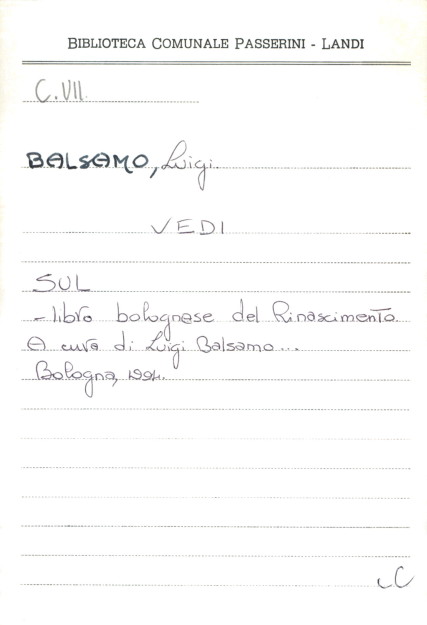 BIBLIOTECA COMUNALE PASSERINI - LANDI
C.VII.
BALSAMO, Luigi.
VEDI
SUL
- libro bolognese del Rinascimento.
A cura di Luigi Balsamo...
Bologna, 1994.